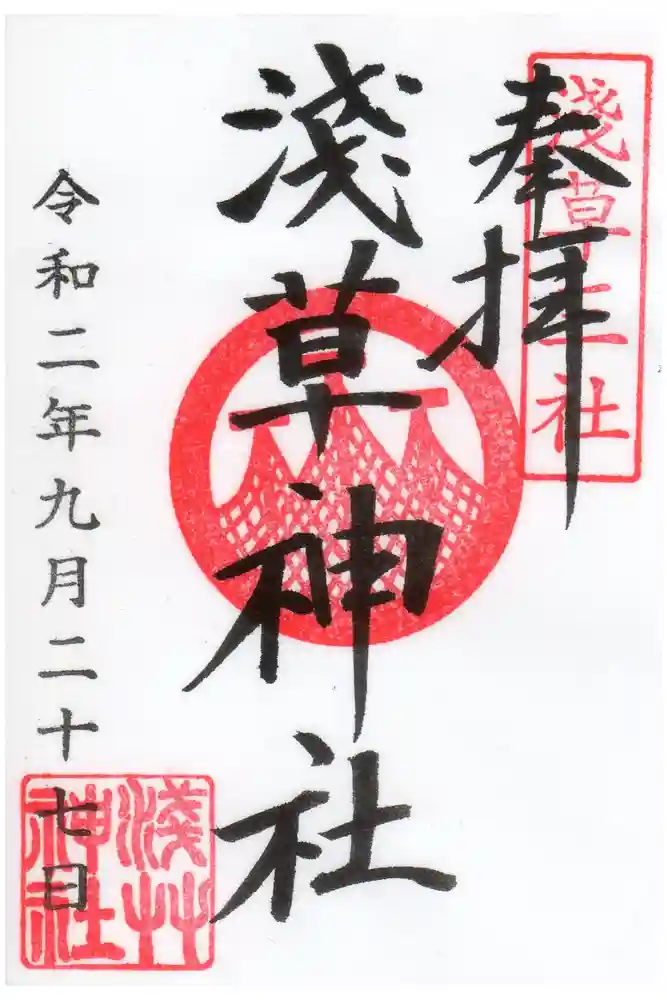 奉拝
淺草三社
淺草神社
令和二年九月二十七日
淺艸神社